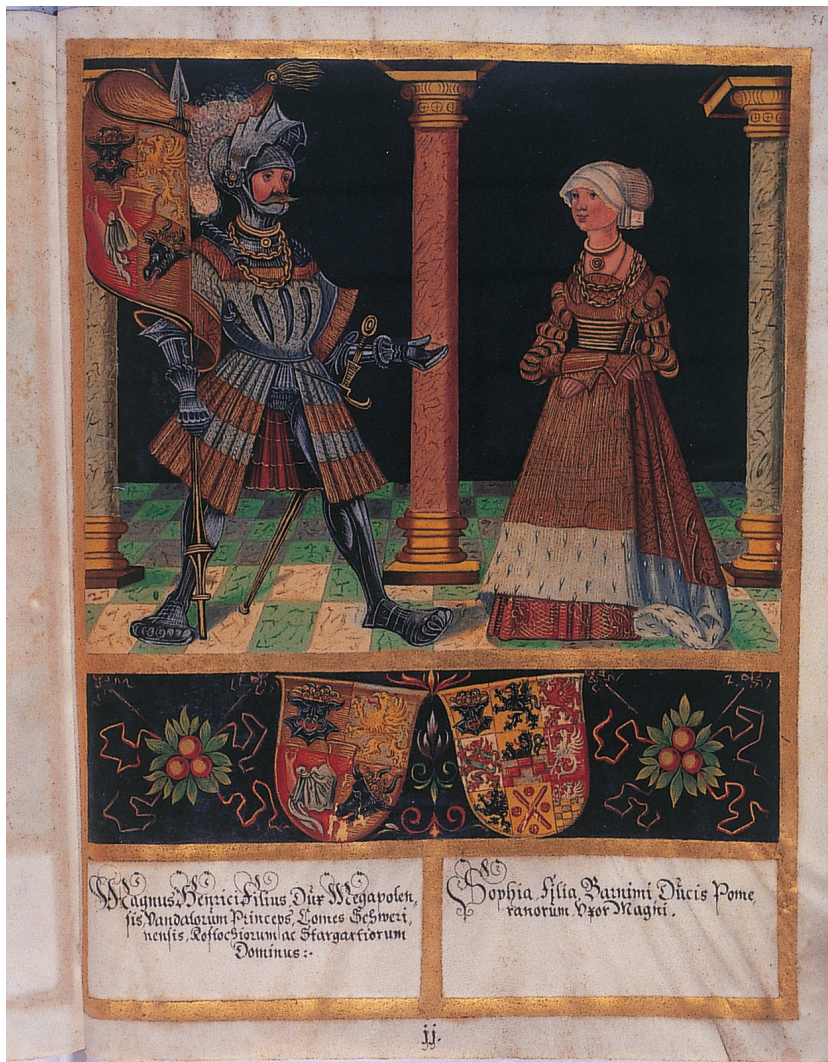 51
Magnus Henrici Filius Dux Megapolen,
sis, Vandalorum Princeps, Comes Schweri,
nensis, Rostochiorum ac Stargartiorum
Dominus :-
Sophia Filia Barnimi Ducis Pome,
ranorum Vxor Magni.
jj.